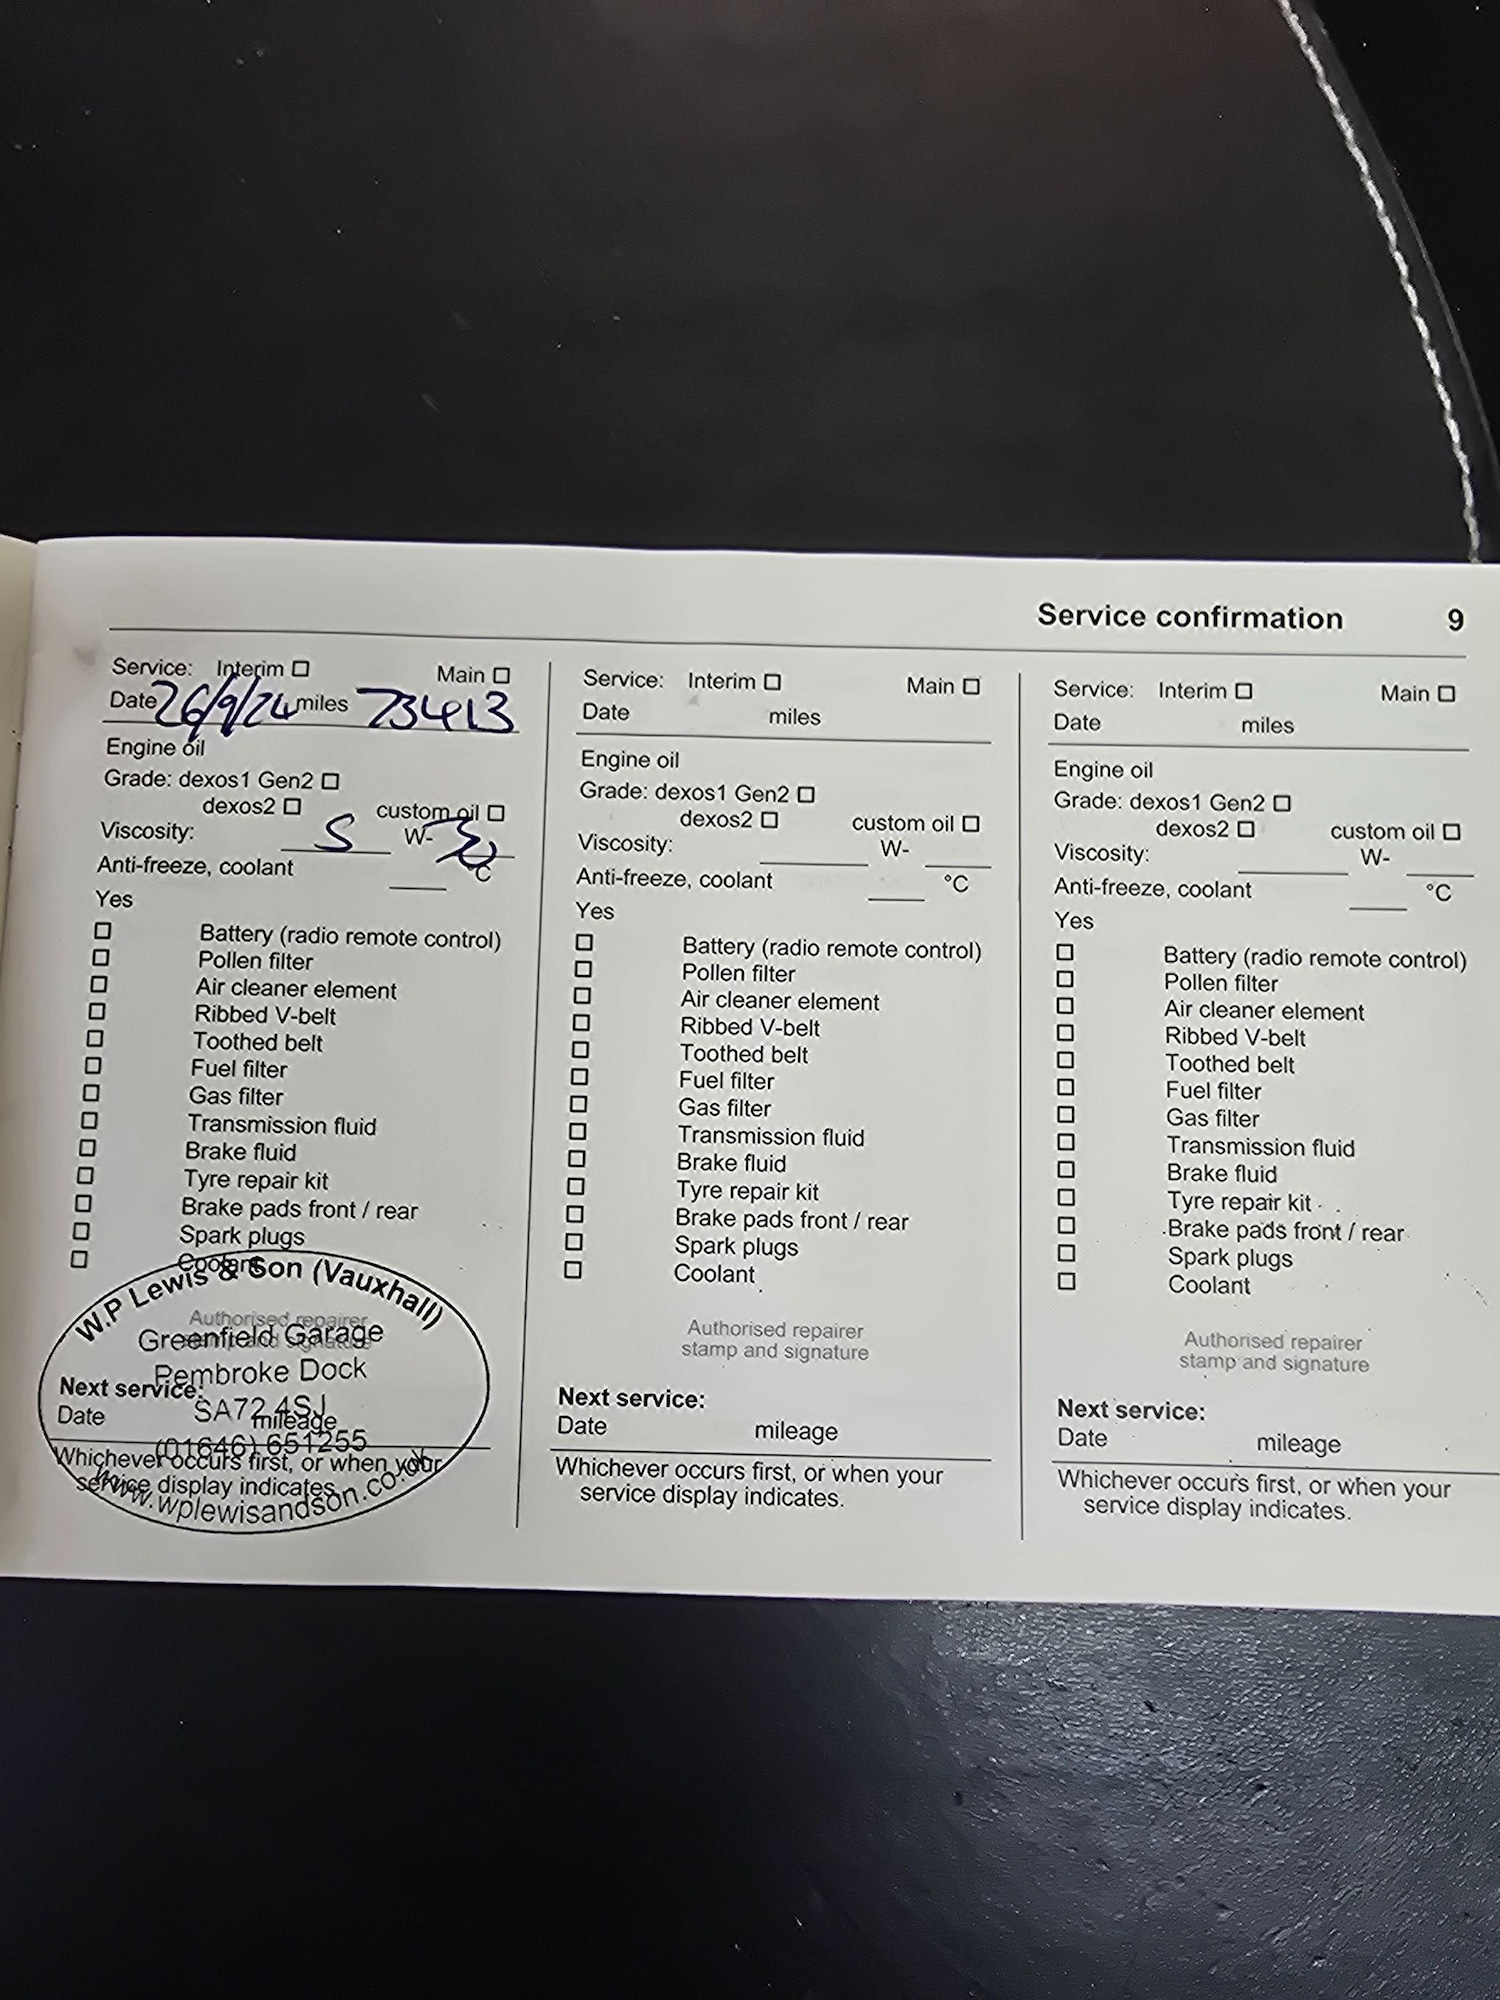 Service confirmation 9
Service: Interim ☐ Main ☐
Date 26/9/24 miles 73413
Engine oil
Grade: dexos1 Gen2 ☐
dexos2 ☐ custom oil ☐
Viscosity: 5 W- 30
Anti-freeze, coolant °C
Yes
☐ Battery (radio remote control)
☐ Pollen filter
☐ Air cleaner element
☐ Ribbed V-belt
☐ Toothed belt
☐ Fuel filter
☐ Gas filter
☐ Transmission fluid
☐ Brake fluid
☐ Tyre repair kit
☐ Brake pads front / rear
☐ Spark plugs
☐ Coolant
Authorised repairer
stamp and signature
Next service:
Date mileage
Whichever occurs first, or when your
service display indicates.
W.P Lewis & Son (Vauxhall)
Greenfield Garage
Pembroke Dock
SA72 4SJ
(01646) 651255
www.wplewisandson.co.uk
Service: Interim ☐ Main ☐
Date miles
Engine oil
Grade: dexos1 Gen2 ☐
dexos2 ☐ custom oil ☐
Viscosity: W-
Anti-freeze, coolant °C
Yes
☐ Battery (radio remote control)
☐ Pollen filter
☐ Air cleaner element
☐ Ribbed V-belt
☐ Toothed belt
☐ Fuel filter
☐ Gas filter
☐ Transmission fluid
☐ Brake fluid
☐ Tyre repair kit
☐ Brake pads front / rear
☐ Spark plugs
☐ Coolant
Authorised repairer
stamp and signature
Next service:
Date mileage
Whichever occurs first, or when your
service display indicates.
Service: Interim ☐ Main ☐
Date miles
Engine oil
Grade: dexos1 Gen2 ☐
dexos2 ☐ custom oil ☐
Viscosity: W-
Anti-freeze, coolant °C
Yes
☐ Battery (radio remote control)
☐ Pollen filter
☐ Air cleaner element
☐ Ribbed V-belt
☐ Toothed belt
☐ Fuel filter
☐ Gas filter
☐ Transmission fluid
☐ Brake fluid
☐ Tyre repair kit
☐ Brake pads front / rear
☐ Spark plugs
☐ Coolant
Authorised repairer
stamp and signature
Next service:
Date mileage
Whichever occurs first, or when your
service display indicates.